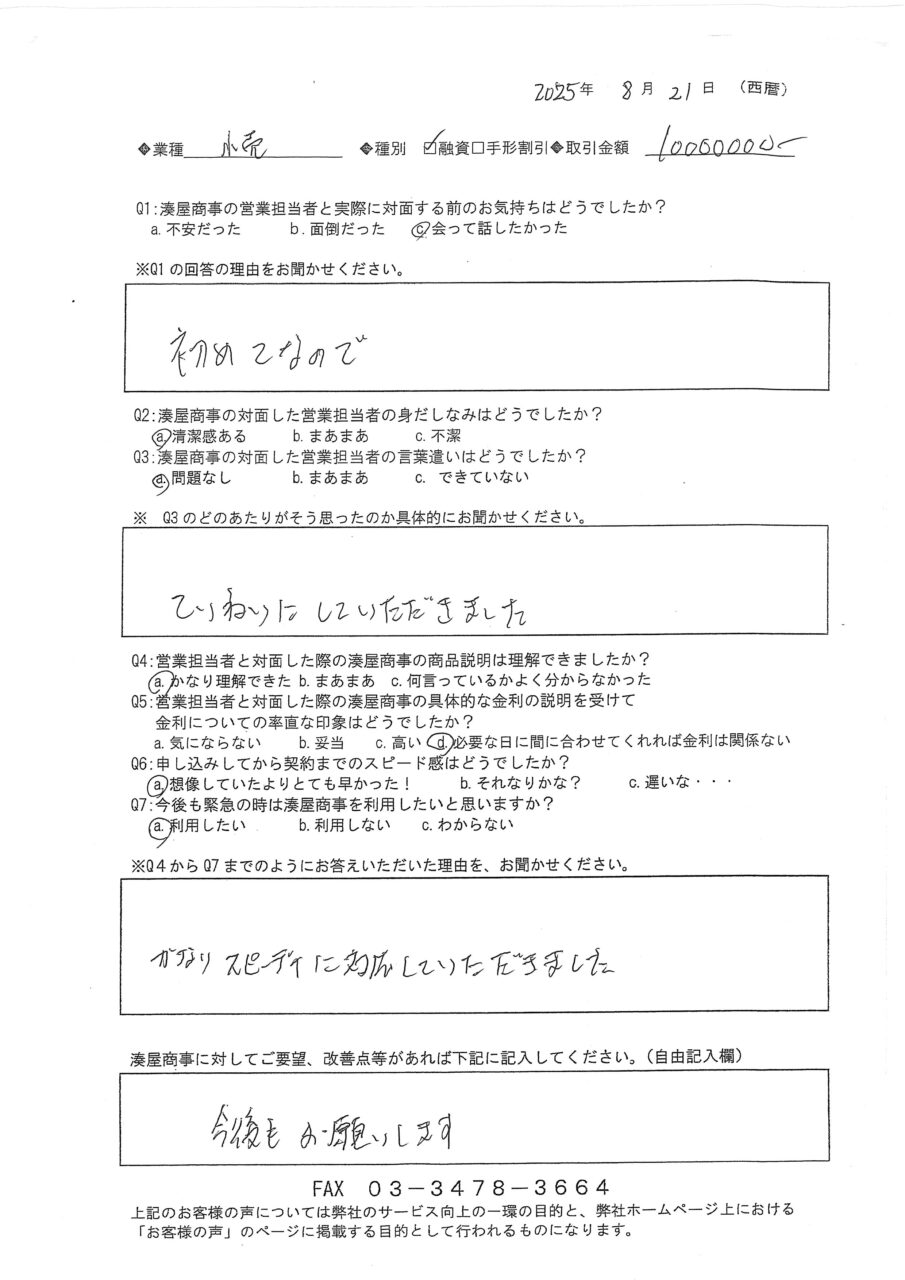 2025年 8月 21日 (西暦)
◆業種 小売 ◆種別 ☑融資□手形割引◆取引金額 10000000-
Q1:湊屋商事の営業担当者と実際に対面する前のお気持ちはどうでしたか?
a.不安だった b.面倒だった c.会って話したかった
※Q1の回答の理由をお聞かせください。
初めてなので
Q2:湊屋商事の対面した営業担当者の身だしなみはどうでしたか?
a.清潔感ある b.まあまあ c.不潔
Q3:湊屋商事の対面した営業担当者の言葉遣いはどうでしたか?
a.問題なし b.まあまあ c. できていない
※ Q3のどのあたりがそう思ったのか具体的にお聞かせください。
ていねいにしていただきました
Q4:営業担当者と対面した際の湊屋商事の商品説明は理解できましたか?
a.かなり理解できた b.まあまあ c.何言っているかよく分からなかった
Q5:営業担当者と対面した際の湊屋商事の具体的な金利の説明を受けて
金利についての率直な印象はどうでしたか?
a.気にならない b.妥当 c.高い d.必要な日に間に合わせてくれれば金利は関係ない
Q6:申し込みしてから契約までのスピード感はどうでしたか?
a.想像していたよりとても早かった! b.それなりかな? c.遅いな・・・
Q7:今後も緊急の時は湊屋商事を利用したいと思いますか?
a.利用したい b.利用しない c.わからない
※Q4からQ7までのようにお答えいただいた理由を、お聞かせください。
かなりスピーディに対応していただきました
湊屋商事に対してご要望、改善点等があれば下記に記入してください。(自由記入欄)
今後もお願いします
FAX 03-3478-3664
上記のお客様の声については弊社のサービス向上の一環の目的と、弊社ホームページ上における
「お客様の声」のページに掲載する目的として行われるものになります。